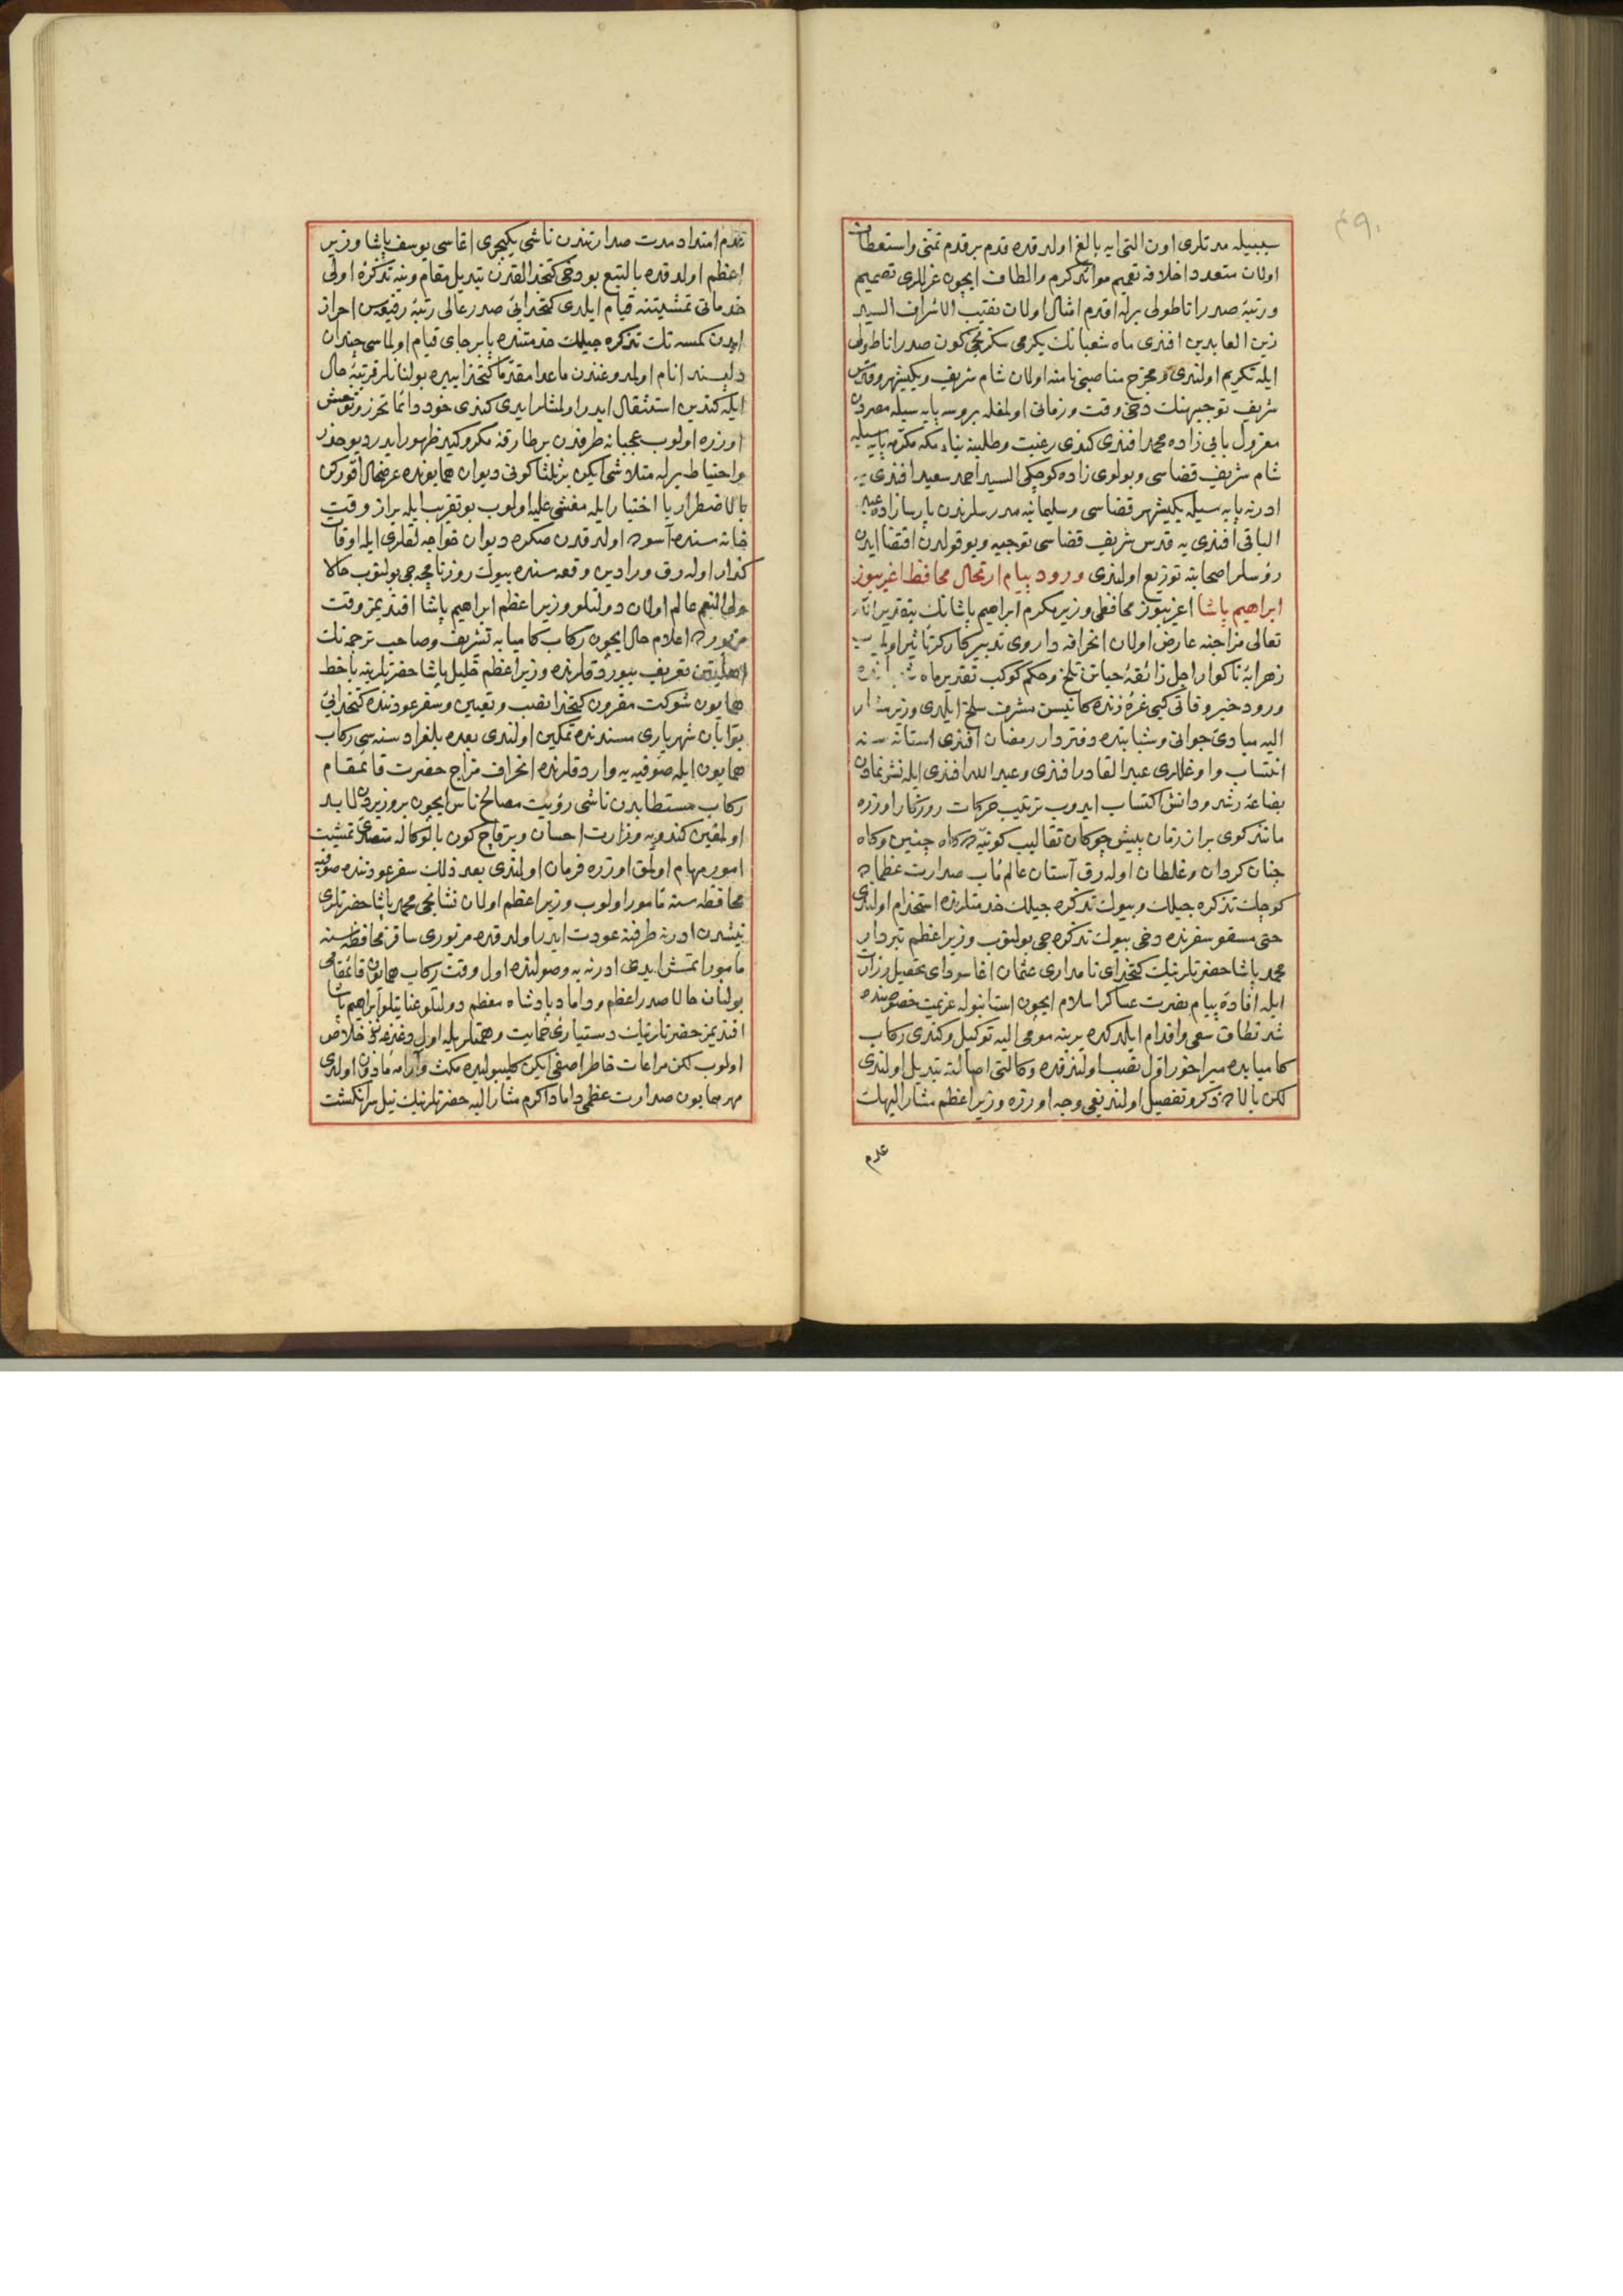 ٤٩٠
سببیله مدتلری اون التی ایه بالغ اولدقده قدم بر قدم تمنی واستعطاف
اولان متعدد اخلافه تعمیم موائد کرم والطاف ایچون عزللری تصمیم
ورتبهٔ صدر اناطولی برله اقدم امثال اولان نقیب الاشراف السید
زین العابدین افندی ماه شعبانك یکرمی سکزنجی کون صدر اناطولی
ایله تکریم اولندی ومخرج مناصبی نامنه اولان شام شریف ویکیشهر وقدس
شریف توجیهنك دخی وقت وزمانی اولمغله بروسه پایه سیله مصردن
معزول بالی زاده محمد افندی کندی رغبت وطلبنه بناء مکه مکرمه پایه سیله
شام شریف قضاسی وبولوی زاده کوچکی السید احمد سعید افندی یه
ادرنه پایه سیله یکیشهر قضاسی وسلیمانیه مدرسلرندن پارسا زاده عبد
الباقی افندی یه قدس شریف قضاسی توجیه وبو قولدن اقتضا ایدن
رؤسلر اصحابنه توزیع اولندی ورود پیام ارتحال محافظ اغریبوز
ابراهیم پاشا اغریبوز محافظی وزیر مکرم ابراهیم پاشانك بتقدیر الله
تعالی مزاجنه عارض اولان انحرافه داروی تدبیر کارکر تأثیر اولمیوب
زهرابهٔ ناکوار اجل ذائقهٔ حیاتن تلخ وحکم کوکب تقدیر ماه
ورود خبر وفاتی کبی غرهٔ زنده کانیسن مشرف سلخ ایلدی وزیر مشار
الیه مبادئ جوانی وشبابنده دفتردار رمضان افندی استانه سنه
انتساب واوغللری عبد القادر افندی وعبد الله افندی ایله نشو نمادن
بضاعهٔ رشد ودانش اکتساب ایدوب ترتیب حرکات روزکار اوزره
مانند کوی بر از زمان پیش چوکان تقالیب کونیه ده کاه چنین وکاه
چنان کردان وغلطان اوله رق آستان عالم مآب صدارت عظماده
کوچك تذکره جیلك وبیوك تذکره جیلك خدمتلرنده استخدام اولندی
حتی مسقو سفرنده دخی بیوك تذکره جی بولنوب وزیر اعظم تبردار
محمد پاشا حضرتلرینك کتخدای نامداری عثمان اغا سودای تحصیل وزارت
ایله افادهٔ پیام نصرت عساکر اسلام ایچون استانبوله عزیمت خصوصنده
شد نطاق سعی واقدام ایلدکده یرینه مومی الیه توکیل وکندی رکاب
کامیابده میر اخور اول نصب اولندقده وکالتی اصالته تبدیل اولندی
لکن بالاده ذکر وتفصیل اولندیغی وجه اوزره وزیر اعظم مشار الیهك
عدم
عدم امتداد مدت صدارتندن ناشی یکیچری اغاسی یوسف پاشا وزیر
اعظم اولدقده بالتبع بو دخی کتخدالقدن تبدیل مقام وینه تذکرهٔ اولی
خدماتی تمشیتنه قیام ایلدی کتخدائئ صدر عالی رتبهٔ رفیعه سن احراز
ایدن کمسه نك تذکره جیلك خدمتنده پابرجای قیام اولماسی چندان
دلپسند انام اولمدوغندن ماعدا مقدما کتخدا بیره بولنانلر قرتبهٔ حال
ایله کندین استثقال ایدر اولمشلر ایدی کندی خود دائما تحرز وتوحش
اوزره اولوب عجبا نه طرفدن بر طارقهٔ مکر وکید ظهور ایدر دیو حذر
واحتیاط برله متلاشی ایکن بر ثلثا کونی دیوان همایونده عرضحال اقورکن
بالاضطرار یا اختیار ایله مغشی علیه اولوب بو تقریب ایله بر از وقت
خانه سنده آسوده اولدقدن صکره دیوان خواجه لقلری ایله اوقات
کذار اوله رق ورادین وقعه سنده بیوك روزنامچه جی بولنوب حالا
ولی النعم عالم اولان دولتلو وزیر اعظم ابراهیم پاشا افندیمز وقت
مزبورده اعلام حال ایچون رکاب کامیابه تشریف وصاحب ترجمه نك
اهلیتن تعریف بیوردقلرنده وزیر اعظم خلیل پاشا حضرتلرینه باخط
همایون شوکت مقرون کتخدا نصب وتعیین وسفر عودتنده کتخدائئ
بوابان شهریاری مسندنده تمکین اولندی بعده بلغراد سنه سی رکاب
همایون ایله صوفیه یه واردقلرنده انحراف مزاج حضرت قائمقام
رکاب مستطابدن ناشی رؤیت مصالح ناس ایچون بر وزیردن لابد
اولمغین کندویه وزارت احسان وبر قاچ کون بالوکاله متصدئ تمشیت
امور مهام اولمق اوزره فرمان اولندی بعد ذلك سفر عودتنده صوفیه
محافظه سنه مأمور اولوب وزیر اعظم اولان نشانجی محمد پاشا حضرتلری
نیشدن ادرنه طرفنه عودت ایدر اولدقده مزبوری ساقز محافظه سنه
مأمور اتمش ایدی ادرنه یه وصولنده اول وقت رکاب همایون قائمقامی
بولنان حالا صدر اعظم وداماد پادشاه معظم دولتلو عنایتلو ابراهیم پاشا
افندیمز حضرتلرینك دستیارئ حمایت وهمتلریله اول دغدغه دن خلاص
اولوب لکن مراعات خاطر اصفی ایکن کلیبولیده مکث وآرامه مأذون اولدی
مهر همایون صدارت عظمی داماد اکرم مشار الیه حضرتلرینك نیل سر انکشت